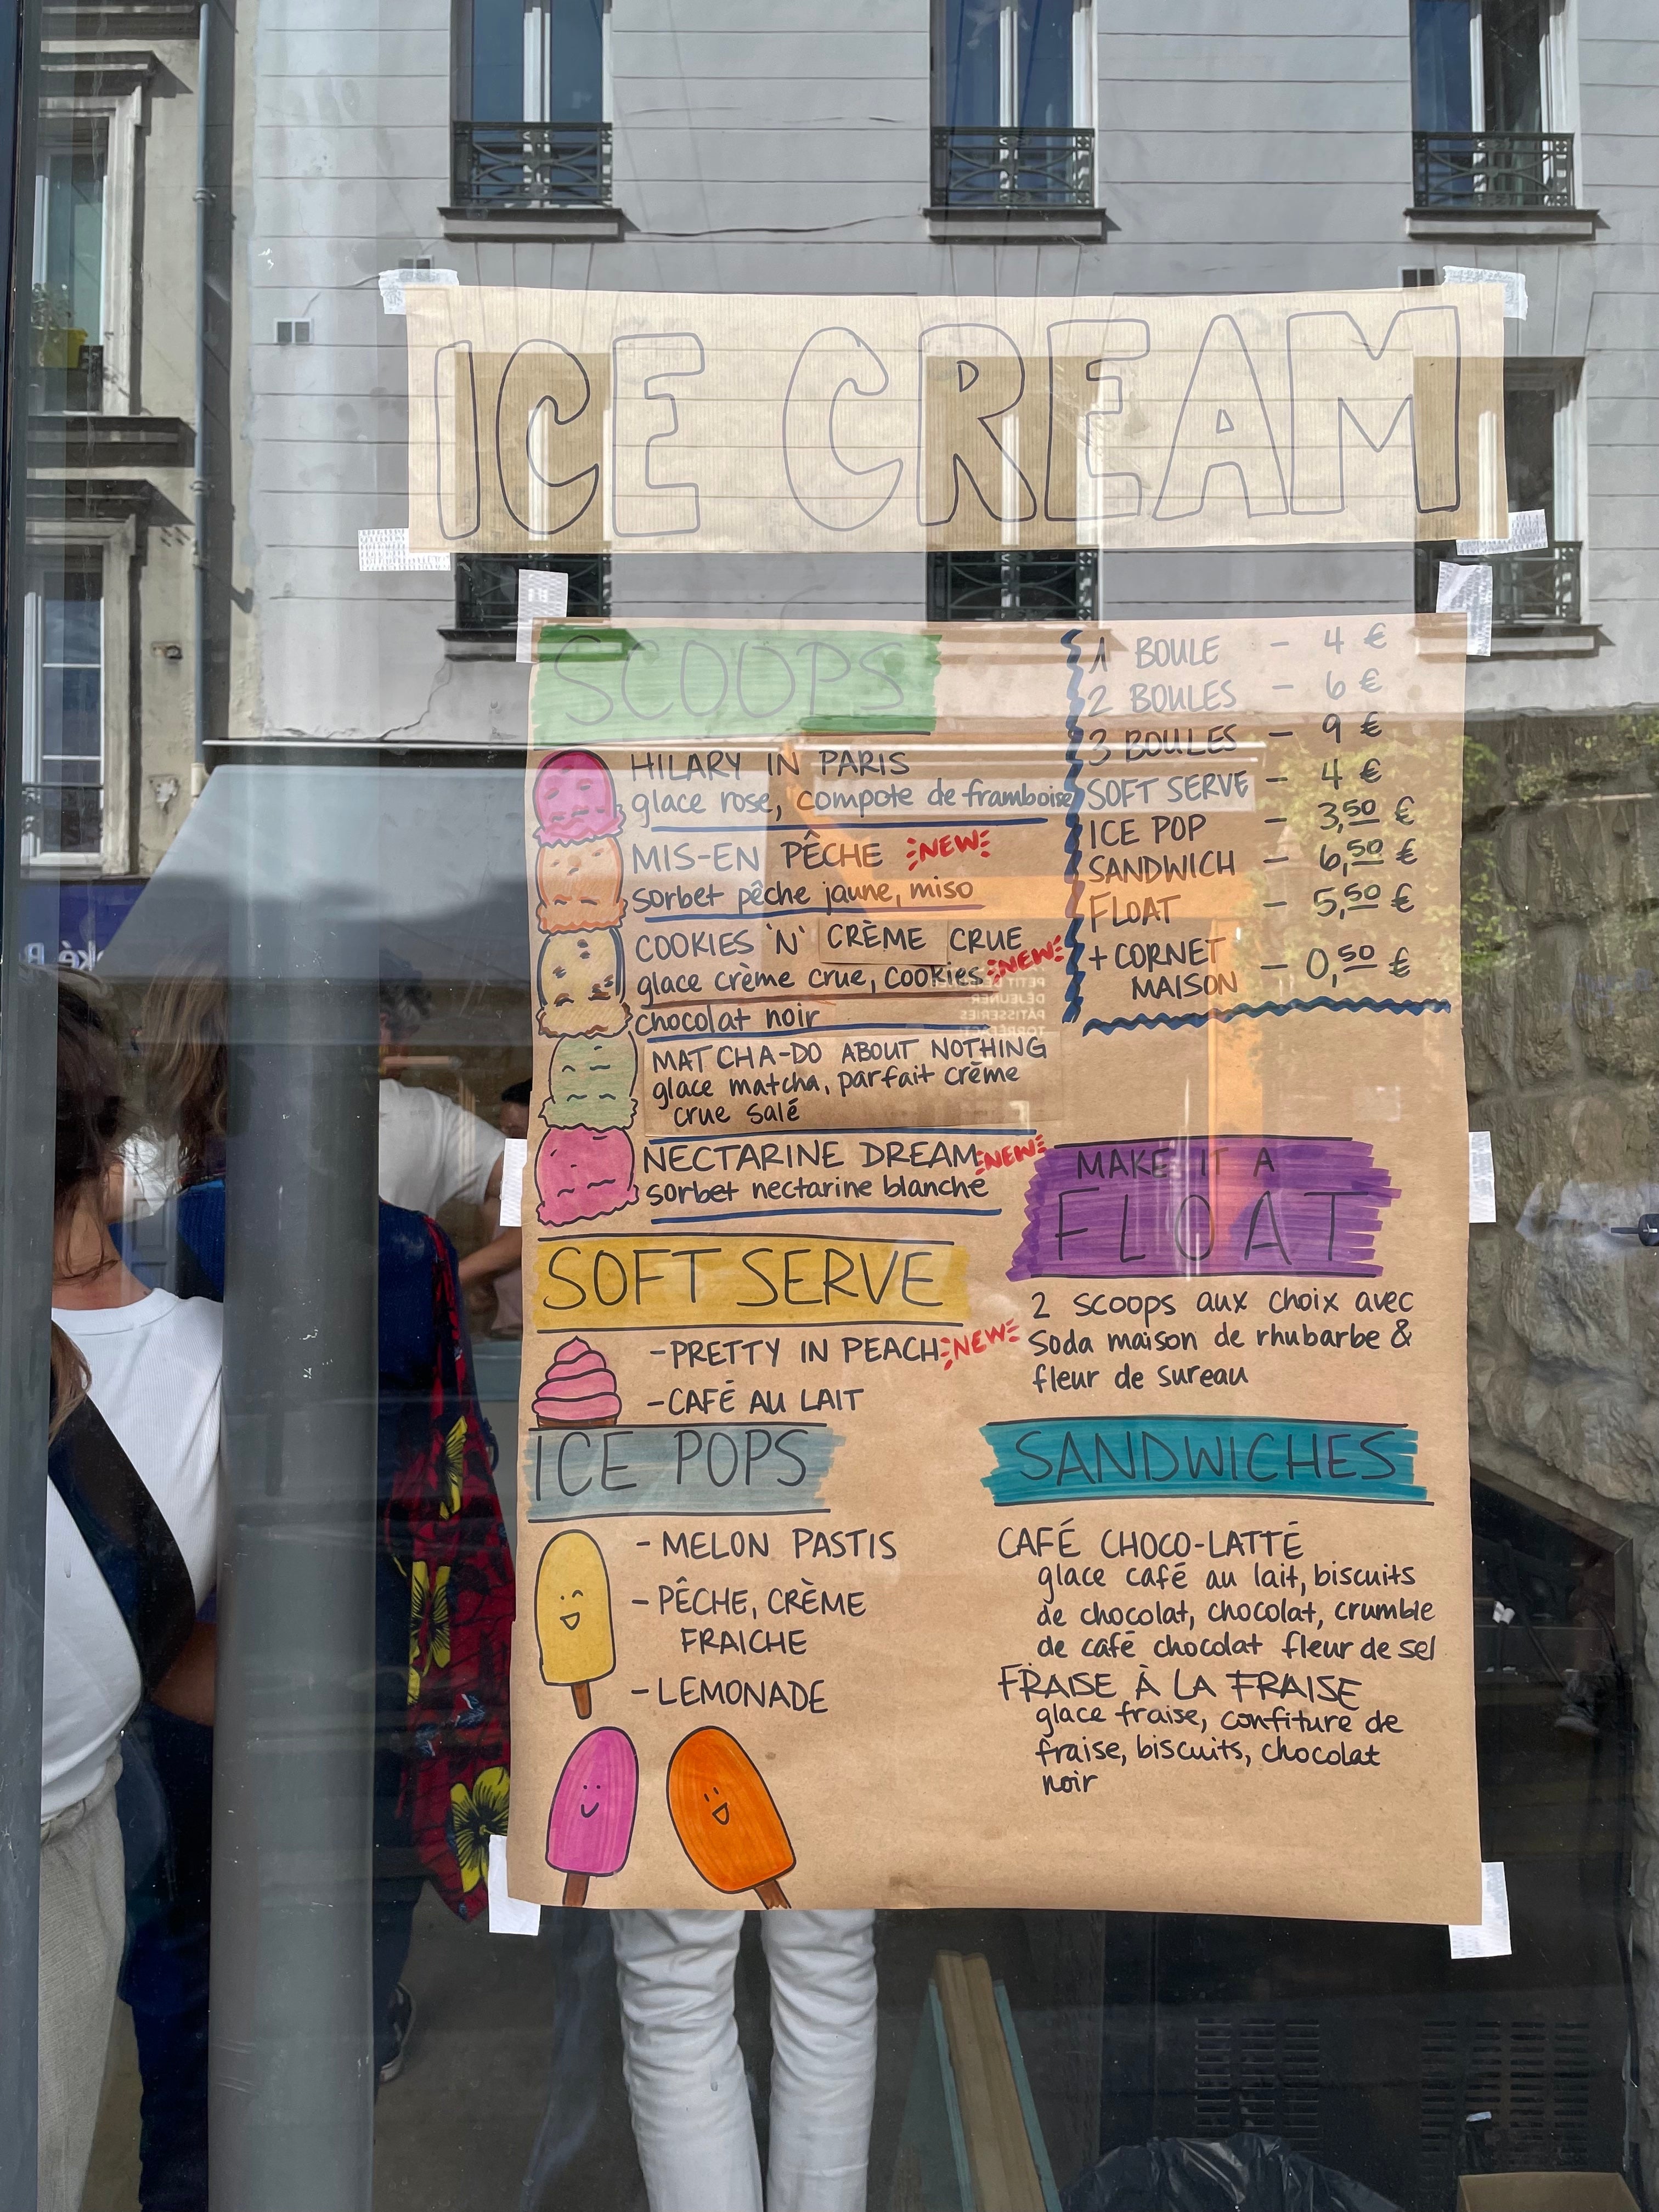 ICE CREAM
SCOOPS
HILARY IN PARIS
glace rose, compote de framboise
MIS-EN PÊCHE NEW
sorbet pêche jaune, miso
COOKIES 'N' CRÈME CRUE
glace crème crue, cookies NEW
chocolat noir
MATCHA-DO ABOUT NOTHING
glace matcha, parfait crème
crue salé
NECTARINE DREAM NEW
sorbet nectarine blanche
1 BOULE - 4 €
2 BOULES - 6 €
3 BOULES - 9 €
SOFT SERVE - 4 €
ICE POP - 3,50 €
SANDWICH - 6,50 €
FLOAT - 5,50 €
+ CORNET
MAISON - 0,50 €
MAKE IT A
FLOAT
2 scoops aux choix avec
soda maison de rhubarbe &
fleur de sureau
SOFT SERVE
- PRETTY IN PEACH NEW
- CAFÉ AU LAIT
ICE POPS
- MELON PASTIS
- PÊCHE, CRÈME
FRAICHE
- LEMONADE
SANDWICHES
CAFÉ CHOCO-LATTÉ
glace café au lait, biscuits
de chocolat, chocolat, crumble
de café chocolat fleur de sel
FRAISE À LA FRAISE
glace fraise, confiture de
fraise, biscuits, chocolat
noir
PETIT
DÉJEUNER
PÂTISSERIES